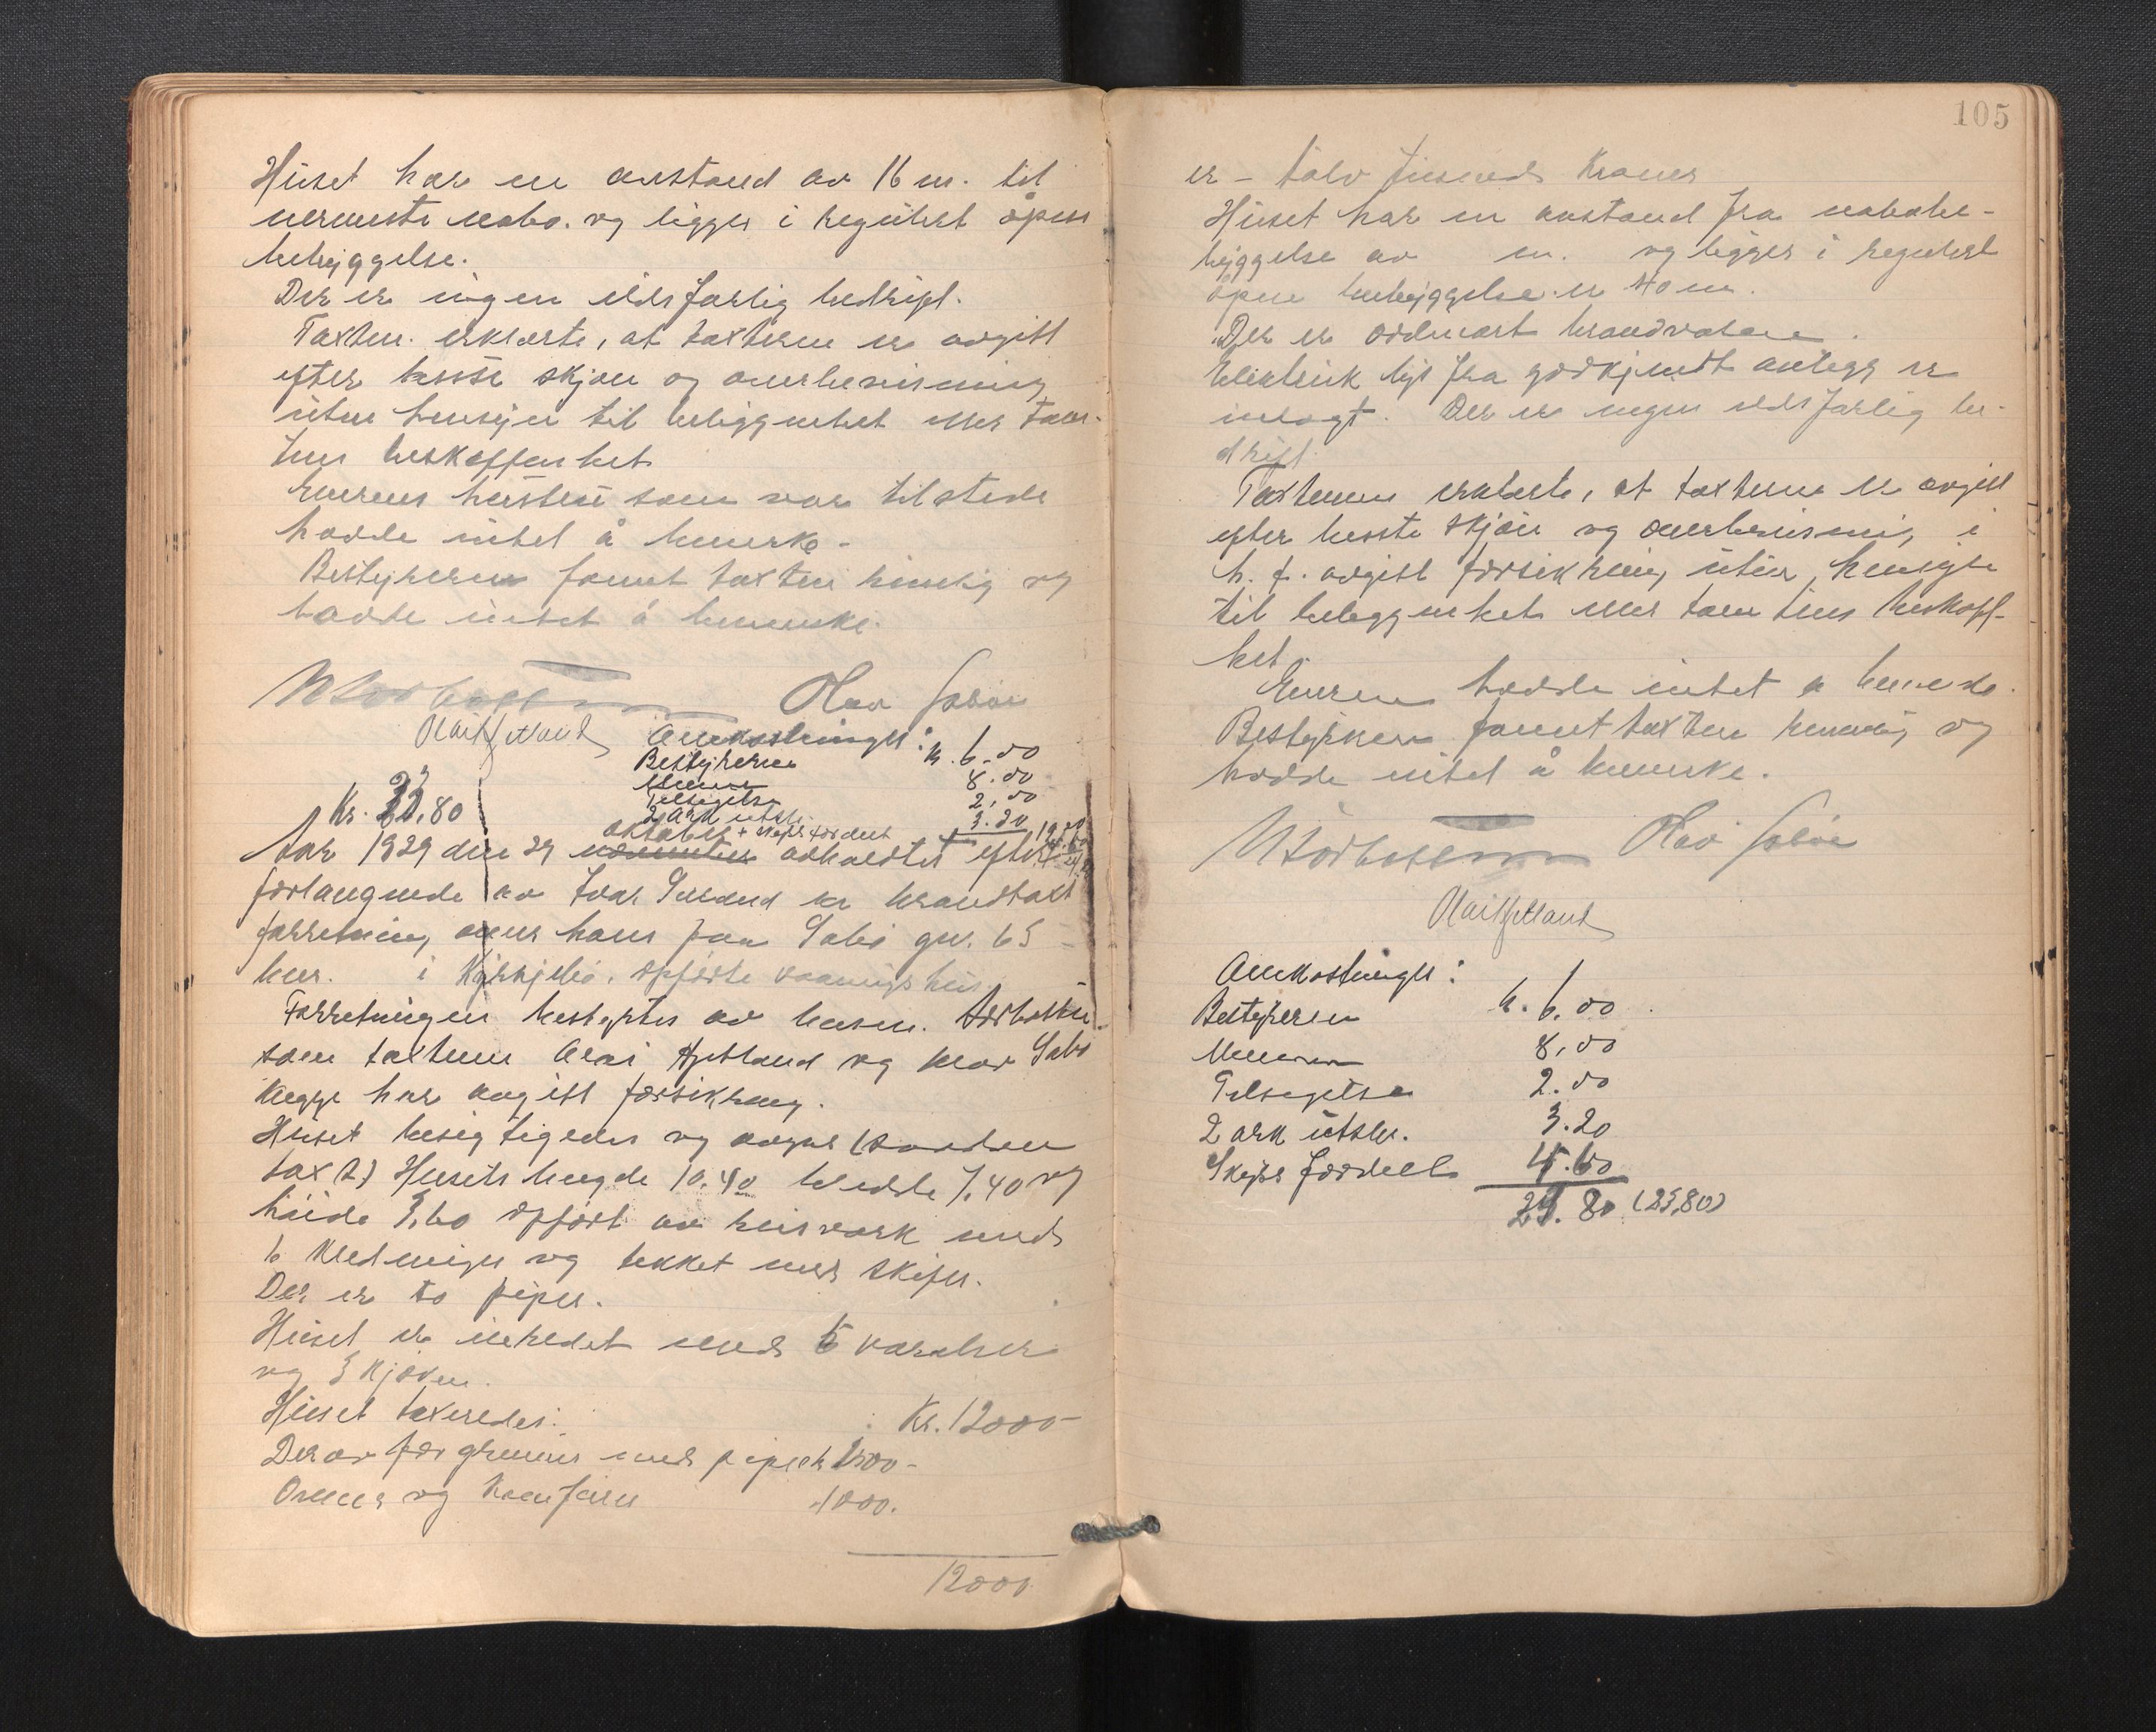 Huset har en avstand av 16 m. til
nermeste nabo. og ligger i regulert åpen
bebyggelse.
Der er ingen ildsfarlig bedrift.
Taxtm. erklærte, at taxterne er avgitt
efter beste skjøn og overbevisning
uten hensyn til beliggenhet eller tom-
tens beskaffenhet
Eierens hustru som var tilstede
hadde intet å bemerke.
Bestyreren fannt taxten rimelig og
hadde intet å bemerke.
Olav Sabøe
Omkostninger:
Bestyreren kr. 6.00
Mennene 8.00
Tilsigelse 2,00
2 ark utskr. 3.20
oktober + skyss fordeelt
Kr. 23,80
Aar 1929 den 29 november avholdtes efter
forlangende av Ivar en brandtaxt
forretning over hans paa Sabø gnr. 65
bnr. i opførte vaaningshus.
Forretningen bestyrtes av lensm.
som taxtmenn og Olav Sabø
begge har avgitt forsikring.
Huset besigtigedes og avgav saadan
taxt) Husets lengde 10.40 bredde 7.40 og
høide 3,60 opført av bisverk med
6 kledninger og tekket med skifer.
Der er to piper.
Huset er inredet med 5 værelser
og 3 kjøken.
Huset taxeredes: Kr. 12000-
Derav for grunnur med piper kr
Ovner og komfuru 1000.
12000
105
er - tolv tusinde Kroner
Huset har en avstand fra nabobe-
byggelse av m. og ligger i regulert
åpen bebyggelse. er 40 m.
Der er ordinært brandvæsen.
Elektrisk lys fra godkjendt anlegg er
inlagt. Der er ingen ildsfarlig be-
drift.
Taxtmenn erklærte, at taxterne er avgitt
efter beste skjøn og overbevisning i
h. t. avgitt forsikring uten hensyn
til beliggenhet eller tomtens beskaff-
het.
Eieren hadde intet å bemerke.
Bestyreren fannt taxten rimelig og
hadde intet å bemerke.
Olav Sabøe
Omkostninger:
Bestyreren kr. 6,00
Mennene 8,00
Tilsigelse 2.00
2 ark utskr. 3.20
Skyss fordeelt 4.60
23.80 (23,80)